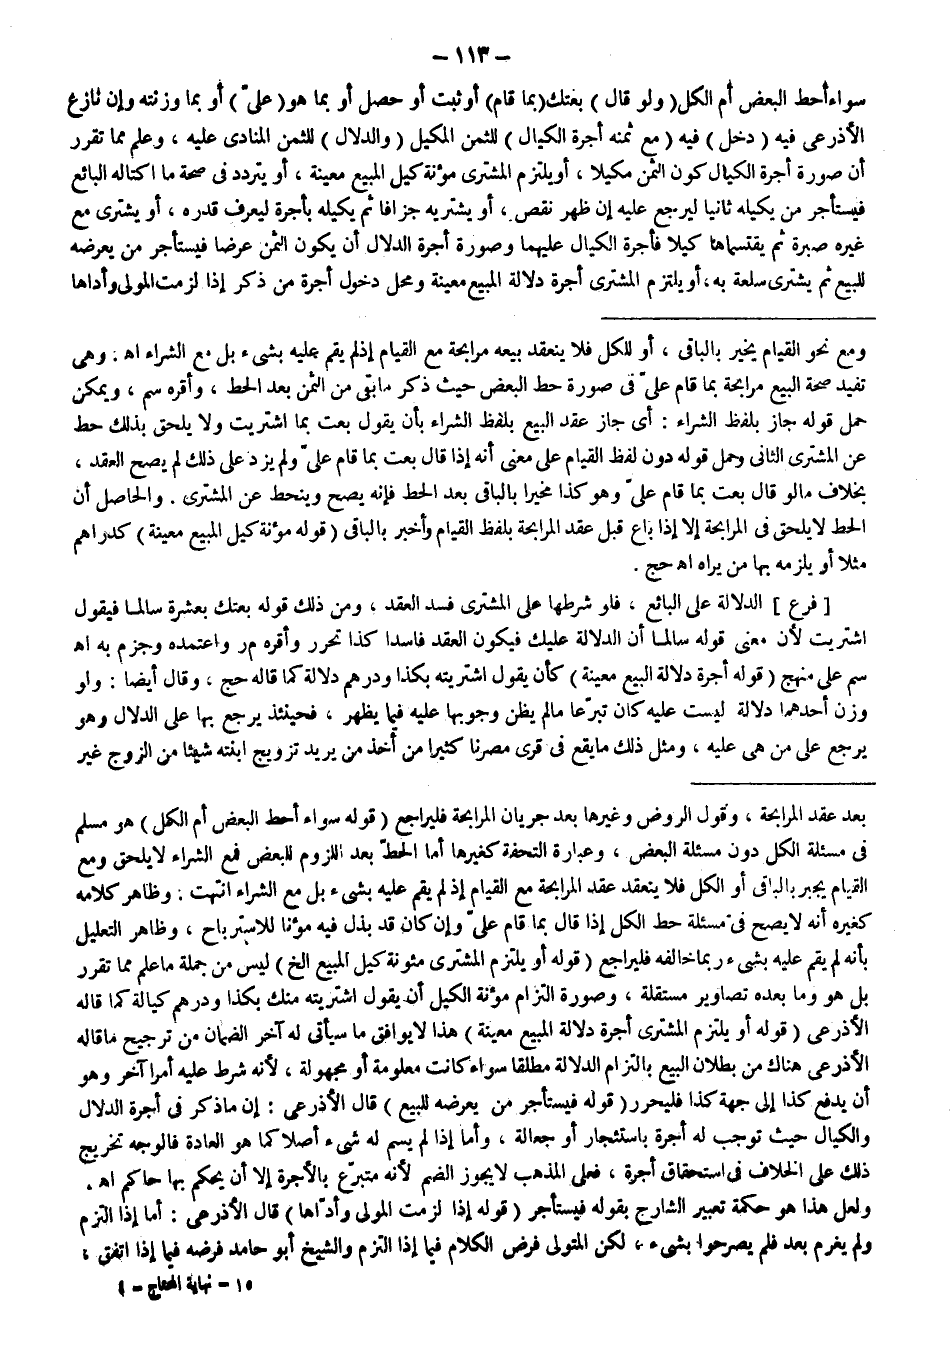 – ١١٣ –
سواء أحط البعض أم الكل ( ولو قال ) بعتك (بما قام) أو ثبت أو حصل أو بما هو ( علىّ ) أو بما وزنته وإن نازع
الأذرعى فيه ( دخل ) فيه ( مع ثمنه أجرة الكيال ) للثمن المكيل ( والدلال ) للثمن المنادى عليه ، وعلم مما تقرر
أن صورة أجرة الكيال كون الثمن مكيلا ، أو يلتزم المشترى مؤنة كيل المبيع معينة ، أو يتردد فى صحة ما اكتاله البائع
فيستأجر من يكيله ثانيا ليرجع عليه إن ظهر نقص ، أو يشتريه جزافا ثم يكيله بأجرة ليعرف قدره ، أو يشترى مع
غيره صبرة ثم يقتسماها كيلا فأجرة الكيال عليهما وصورة أجرة الدلال أن يكون الثمن عرضا فيستأجر من يعرضه
للبيع ثم يشترى سلعة به ، أو يلتزم المشترى أجرة دلالة المبيع معينة ومحل دخول أجرة من ذكر إذا لزمت المولى وأداها
ومع نحو القيام يخير بالباقى ، أو للكل فلا ينعقد بيعه مرابحة مع القيام إذ لم يقم عليه بشىء بل مع الشراء اه . وهى
تفيد صحة البيع مرابحة بما قام علىّ فى صورة حط البعض حيث ذكر مابقى من الثمن بعد الحط ، وأقره سم ، ويمكن
حمل قوله جاز بلفظ الشراء : أى جاز عقد البيع بلفظ الشراء بأن يقول بعت بما اشتريت ولا يلحق بذلك حط
عن المشترى الثانى وحمل قوله دون لفظ القيام على معنى أنه إذا قال بعت بما قام علىّ ولم يزد على ذلك لم يصح العقد ،
بخلاف مالو قال بعت بما قام علىّ وهو كذا مخبرا بالباقى بعد الحط فإنه يصح وينحط عن المشترى . والحاصل أن
الحط لايلحق فى المرابحة إلا إذا باع قبل عقد المرابحة بلفظ القيام وأخبر بالباقى ( قوله مؤنة كيل المبيع معينة ) كدراهم
مثلا أو يلزمه بها من يراه اه حج .
[ فرع ] الدلالة على البائع ، فلو شرطها على المشترى فسد العقد ، ومن ذلك قوله بعتك بعشرة سالما فيقول
اشتريت لأن معنى قوله سالما أن الدلالة عليك فيكون العقد فاسدا كذا تحرر وأقره مر واعتمده وجزم به اه
سم على منهج ( قوله أجرة دلالة البيع معينة ) كأن يقول اشتريته بكذا ودرهم دلالة كما قاله حج ، وقال أيضا : ولو
وزن أحدهما دلالة ليست عليه كان تبرّعا مالم يظن وجوبها عليه فيما يظهر ، فحينئذ يرجع بها على الدلال وهو
يرجع على من هى عليه ، ومثل ذلك مايقع فى قرى مصرنا كثيرا من أخذ من يريد تزويج ابنته شيئا من الزوج غير
بعد عقد المرابحة ، وقول الروض وغيرها بعد جريان المرابحة فليراجع ( قوله سواء أحط البعض أم الكل ) هو مسلم
فى مسئلة الكل دون مسئلة البعض ، وعبارة التحفة كغيرها أما الحطّ بعد اللزوم للبعض فمع الشراء لايلحق ومع
القيام يجبر بالباقى أو الكل فلا ينعقد عقد المرابحة مع القيام إذ لم يقم عليه بشىء بل مع الشراء انتهت . وظاهر كلامه
كغيره أنه لايصح فى مسئلة حط الكل إذا قال بما قام علىّ وإن كان قد بذل فيه مؤنا للاسترباح ، وظاهر التعليل
بأنه لم يقم عليه بشىء ربما خالفه فليراجع ( قوله أو يلتزم المشترى مئونة كيل المبيع الخ ) ليس من جملة ماعلم مما تقرر
بل هو وما بعده تصاوير مستقلة ، وصورة التزام مؤنة الكيل أن يقول اشتريته منك بكذا ودرهم كيالة كما قاله
الأذرعى ( قوله أو يلتزم المشترى أجرة دلالة المبيع معينة ) هذا لايوافق ما سيأتى له آخر الضمان من ترجيح ماقاله
الأذرعى هناك من بطلان البيع بالتزام الدلالة مطلقا سواء كانت معلومة أو مجهولة ، لأنه شرط عليه أمرا آخر وهو
أن يدفع كذا إلى جهة كذا فليحرر ( قوله فيستأجر من يعرضه للبيع ) قال الأذرعى : إن ماذكر فى أجرة الدلال
والكيال حيث توجب له أجرة باستئجار أو جعالة ، وأما إذا لم يسم له شىء أصلا كما هو العادة فالوجه تخريج
ذلك على الخلاف فى استحقاق أجرة ، فعلى المذهب لايجوز الضم لأنه متبرّع بالأجرة إلا أن يحكم بها حاكم اه .
ولعل هذا هو حكمة تعبير الشارح بقوله فيستأجر ( قوله إذا لزمت المولى وأدّاها ) قال الأذرعى : أما إذا التزم
ولم يغرم بعد فلم يصرحوا بشىء ، لكن المتولى فرض الكلام فيما إذا التزم والشيخ أبو حامد فرضه فيما إذا اتفق ،
١٥ – نهاية المحتاج – ٤